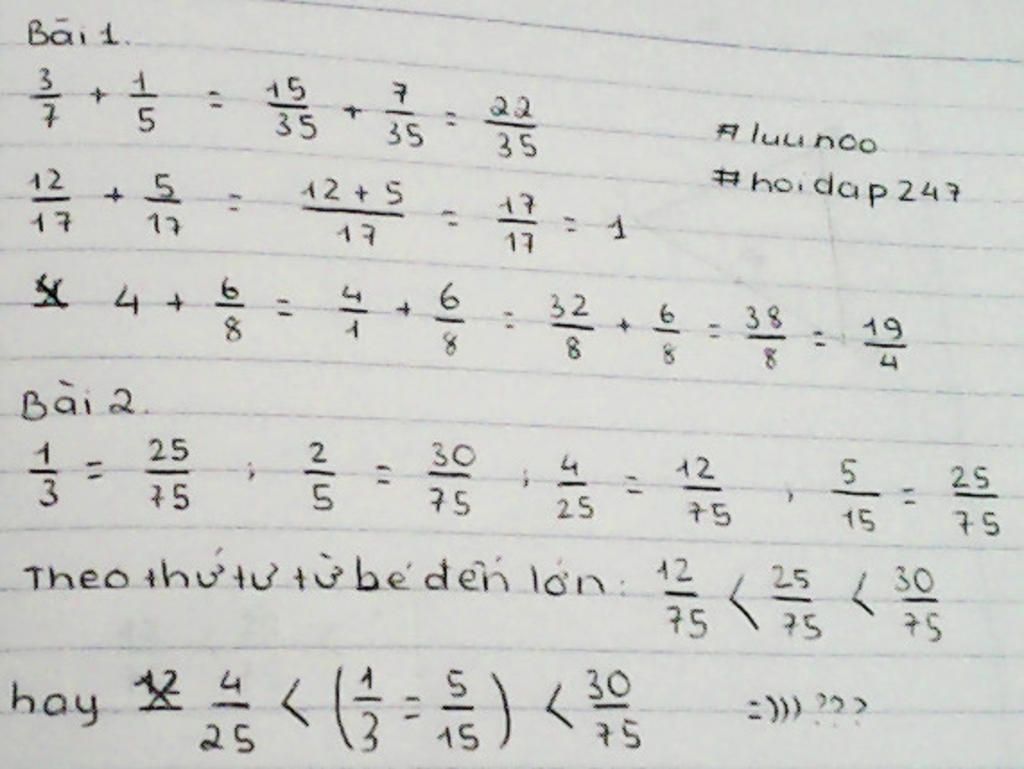 Bài 1.
3/7 + 1/5 = 15/35 + 7/35 = 22/35
#luunoo
#hoidap247
12/17 + 5/17 = 12 + 5/17 = 17/17 = 1
4 + 6/8 = 4/1 + 6/8 = 32/8 + 6/8 = 38/8 = 19/4
Bài 2.
1/3 = 25/75 ; 2/5 = 30/75 ; 4/25 = 12/75 , 5/15 = 25/75
Theo thứ tự từ bé đến lớn: 12/75 < 25/75 < 30/75
hay 4/25 < (1/3 = 5/15) < 30/75 =)))???